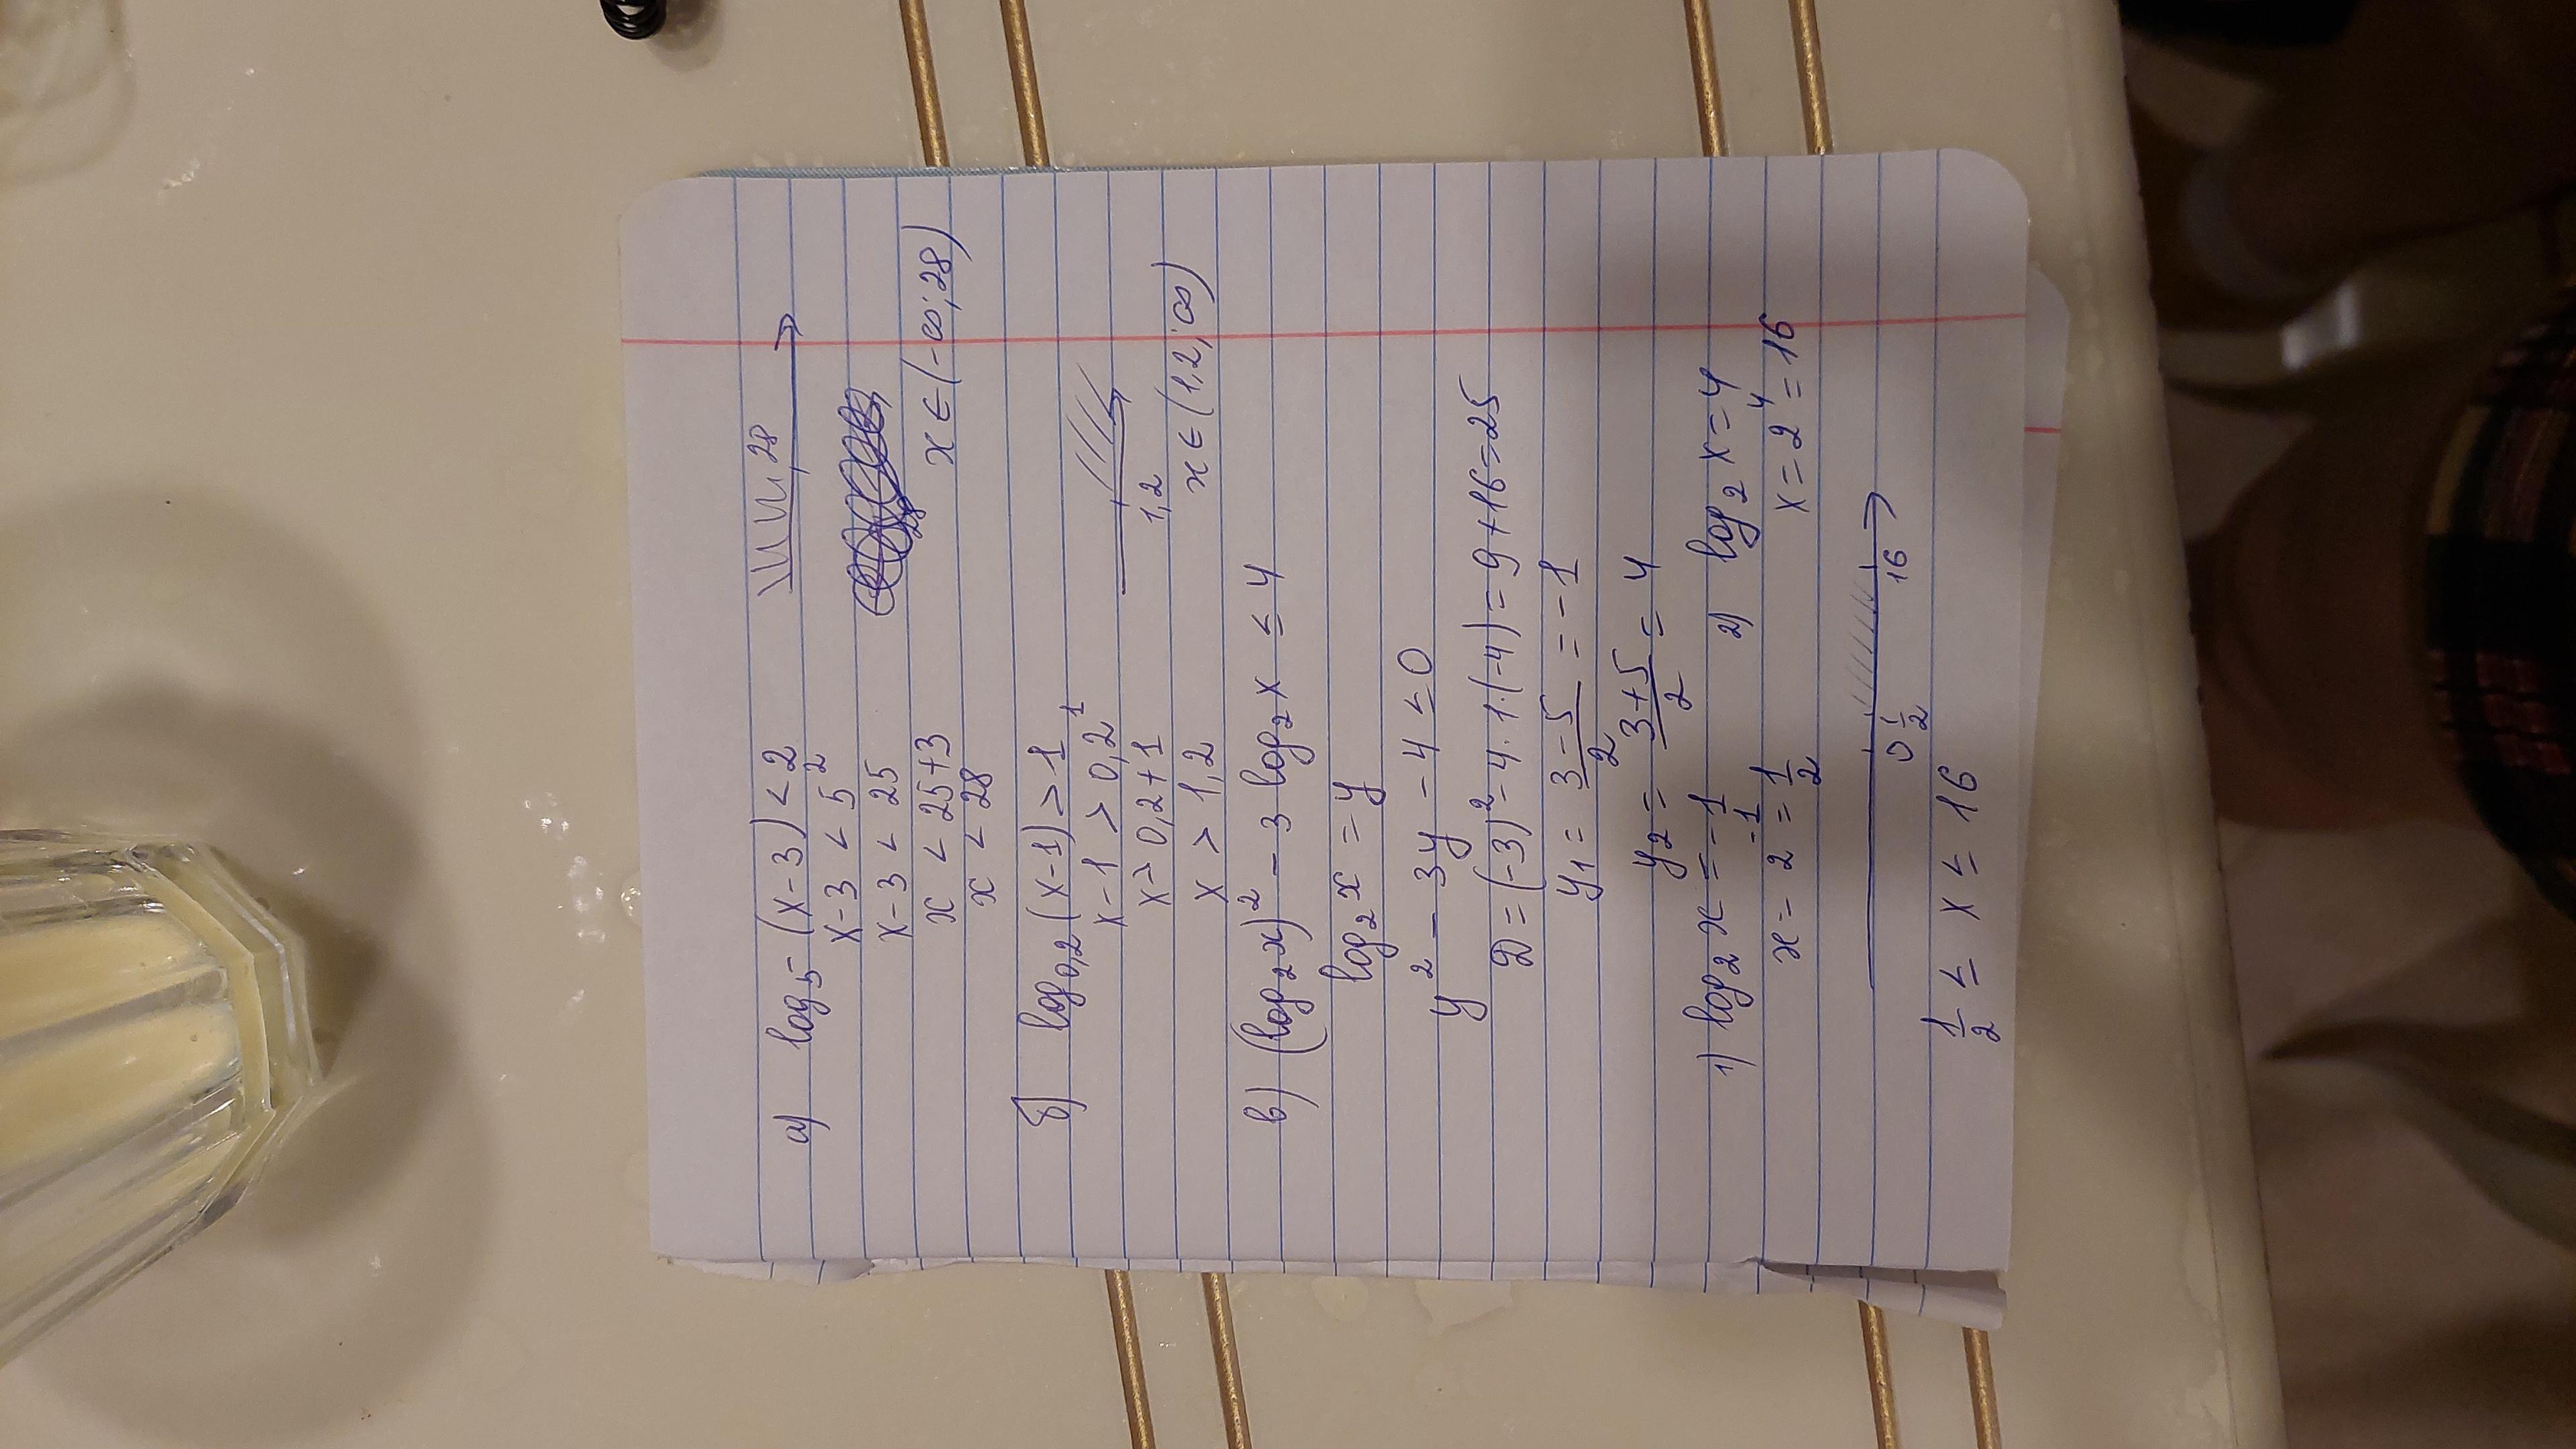 а) log₅(x-3) < 2
x-3 < 5²
x-3 < 25
x < 25+3
x < 28
28
x ∈ (-∞; 28)
б) log₀,₂(x-1) > 1
x-1 > 0,2¹
x > 0,2+1
x > 1,2
1,2
x ∈ (1,2; ∞)
в) (log₂x)² - 3 log₂x ≤ 4
log₂x = y
y² - 3y - 4 ≤ 0
D = (-3)² - 4·1·(-4) = 9+16=25
y₁ = (3-5)/2 = -1
y₂ = (3+5)/2 = 4
1) log₂x = -1 2) log₂x = 4
x = 2⁻¹ = 1/2 x = 2⁴ = 16
0 1/2 16
1/2 ≤ x ≤ 16